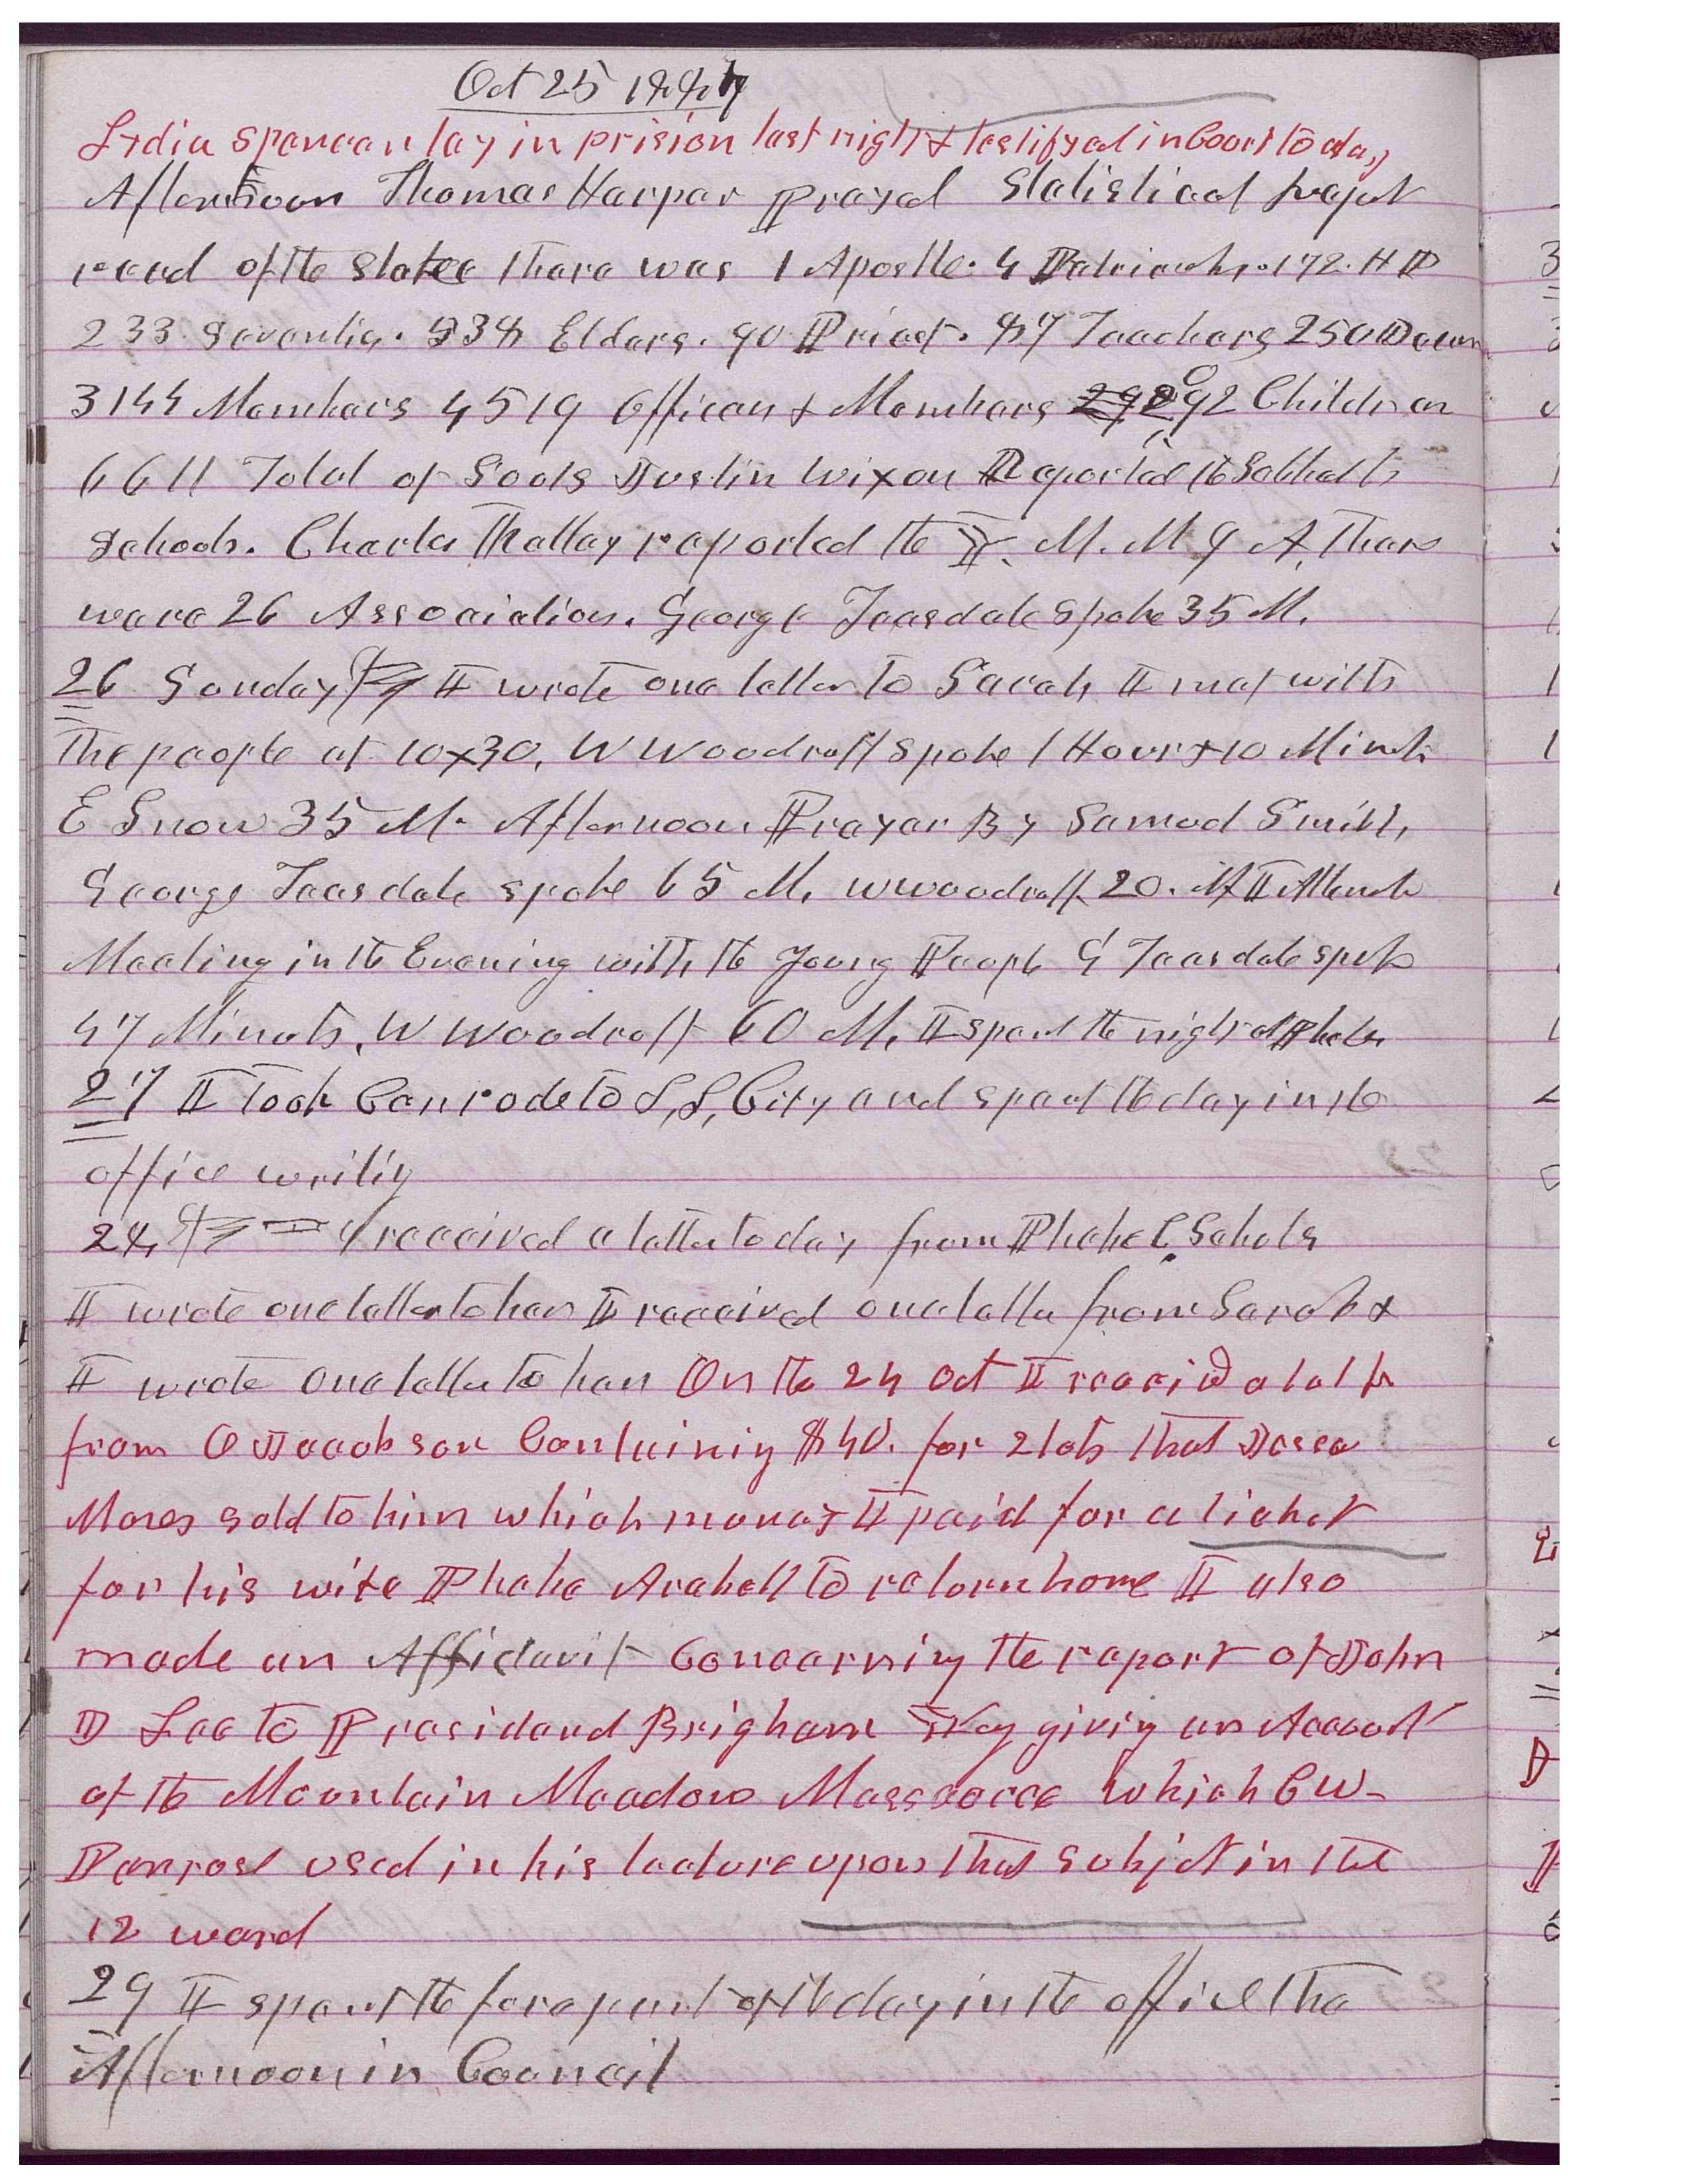 Oct 25 1884
Lydia Spencer lay in prision last night & testifyed in Court to day
Afternoon Thomas Harper Prayed Statistical report
read of the Stake there was 1 Apostle. 4 Patriarchs. 172. H P
233 Seventies. 538 Elders. 90 Priest. 87 Teachers 250 Deacon
3144 Members 4519 Officers & Members 2092 Children
6611 Total of Souls Justin Wixom Reported the Sabbath
Schools. Charles Kelley reported the Y. M. M I A, There
were 26 Association. George Teasdale Spoke 35 M.
26 Sunday I wrote one letter to Sarah I met with
The people at 10x30. W Woodruff Spoke 1 Hour & 10 Minuts
E Snow 35 M. Afternoon Prayer By Samuel Smith,
George Teasdale spoke 65 M, W Woodruff 20. M I Attended
Meeting in the Evening with the Young People G Teasdale spoke
47 Minuts, W Woodruff 60 M, I spent the night at Phebes
27 I Took Cars rode to S, L, City and spent the day in the
office writing
28, I received a letter to day from Phebe C. Scholes
I wrote one letter to her I received one letter from Sarah &
I wrote one letter to her On the 24 Oct I receivd a letter
from O Jacobson Containing $40. for 2 lots that Jesse
Moses sold to him which money I paid for a ticket
for his wife Phebe Arabell to return home I also
made an Affidavit Concerning the report of John
D Lee to President Brigham Young giving an Account
of the Mountain Meadow Massaccee which C W-
Penrose used in his lecture upon that subject in the
12 ward
29 I spent the fore part of the day in the office The
Afternoon in Council